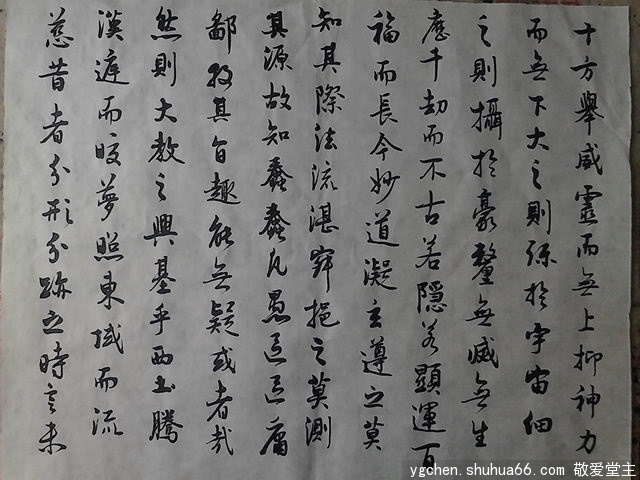 十方舉威靈而無上抑神力
而無下大之則彌於宇宙細
之則攝於豪釐無滅無生
歷千劫而不古若隱若顯運百
福而長今妙道凝玄遵之莫
知其際法流湛寂挹之莫測
其源故知蠢蠢凡愚區區庸
鄙投其旨趣能無疑或者哉
然則大教之興基乎西土騰
漢庭而皎夢照東域而流
慈昔者分形分跡之時言未
ygchen.shuhua66.com 敬爱堂主